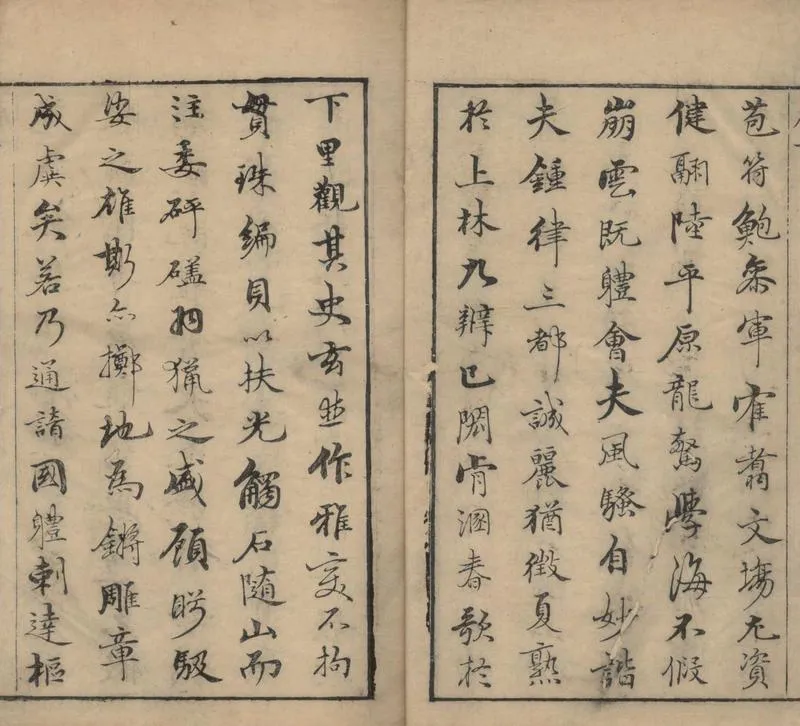 苞符鮑叅軍寉翥文塲尤資
健翮陸平原龍驚學海不假
崩雲既軆會夫風騷自妙諧
夫鍾律三都誠麗猶徵夏熟
扵上林九辯已闋肯溷春歌扵
下里觀其史玄並作雅變不拘
貫珠編貝以扶光觸石隨山而
注委砰礚羽獵之盛顧眄馺
娑之雄斯亦擲地為鏘雕章
成虞矣若乃通諳國軆剌達樞